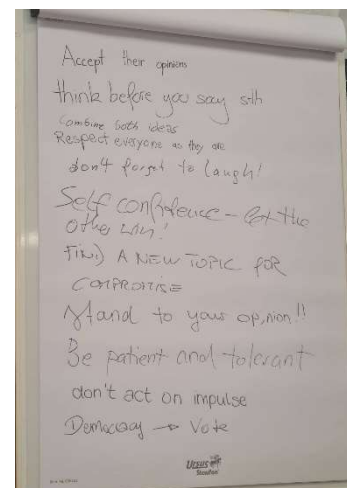 Accept their opinions
think before you say sth
Combine both ideas
Respect everyone as they are
don't forget to laugh!
Self confidence – let the
other win!
FIND A NEW TOPIC FOR
COMPROMISE
Stand to your opinion!!
Be patient and tolerant
don't act on impulse
Democracy → Vote